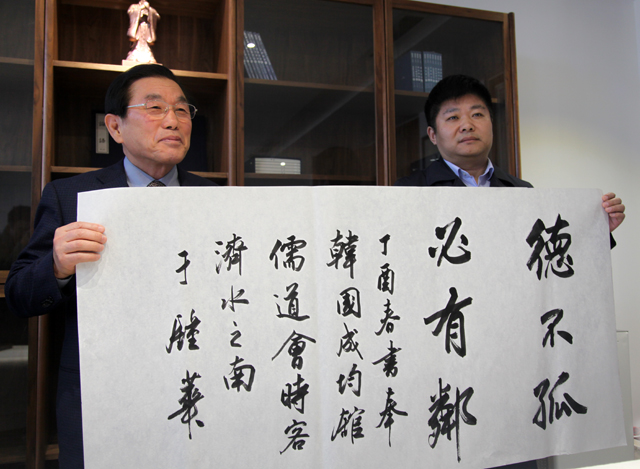 德不孤
必有鄰
丁酉春書奉
韓國成均館
儒道會時客
濟水之南
于華